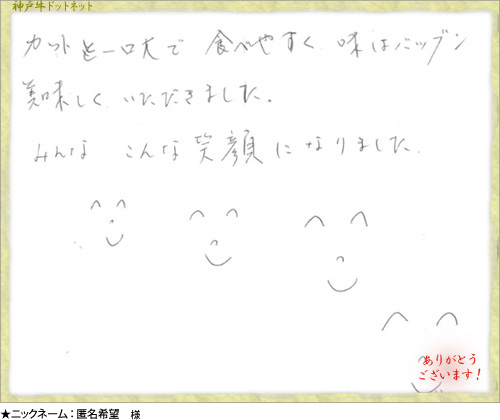 神戸牛ドットネット
カットも一口大で 食べやすく 味はバツグン
美味しく いただきました。
みんな こんな笑顔になりました
ありがとう
ございます!
★ニックネーム:匿名希望 様